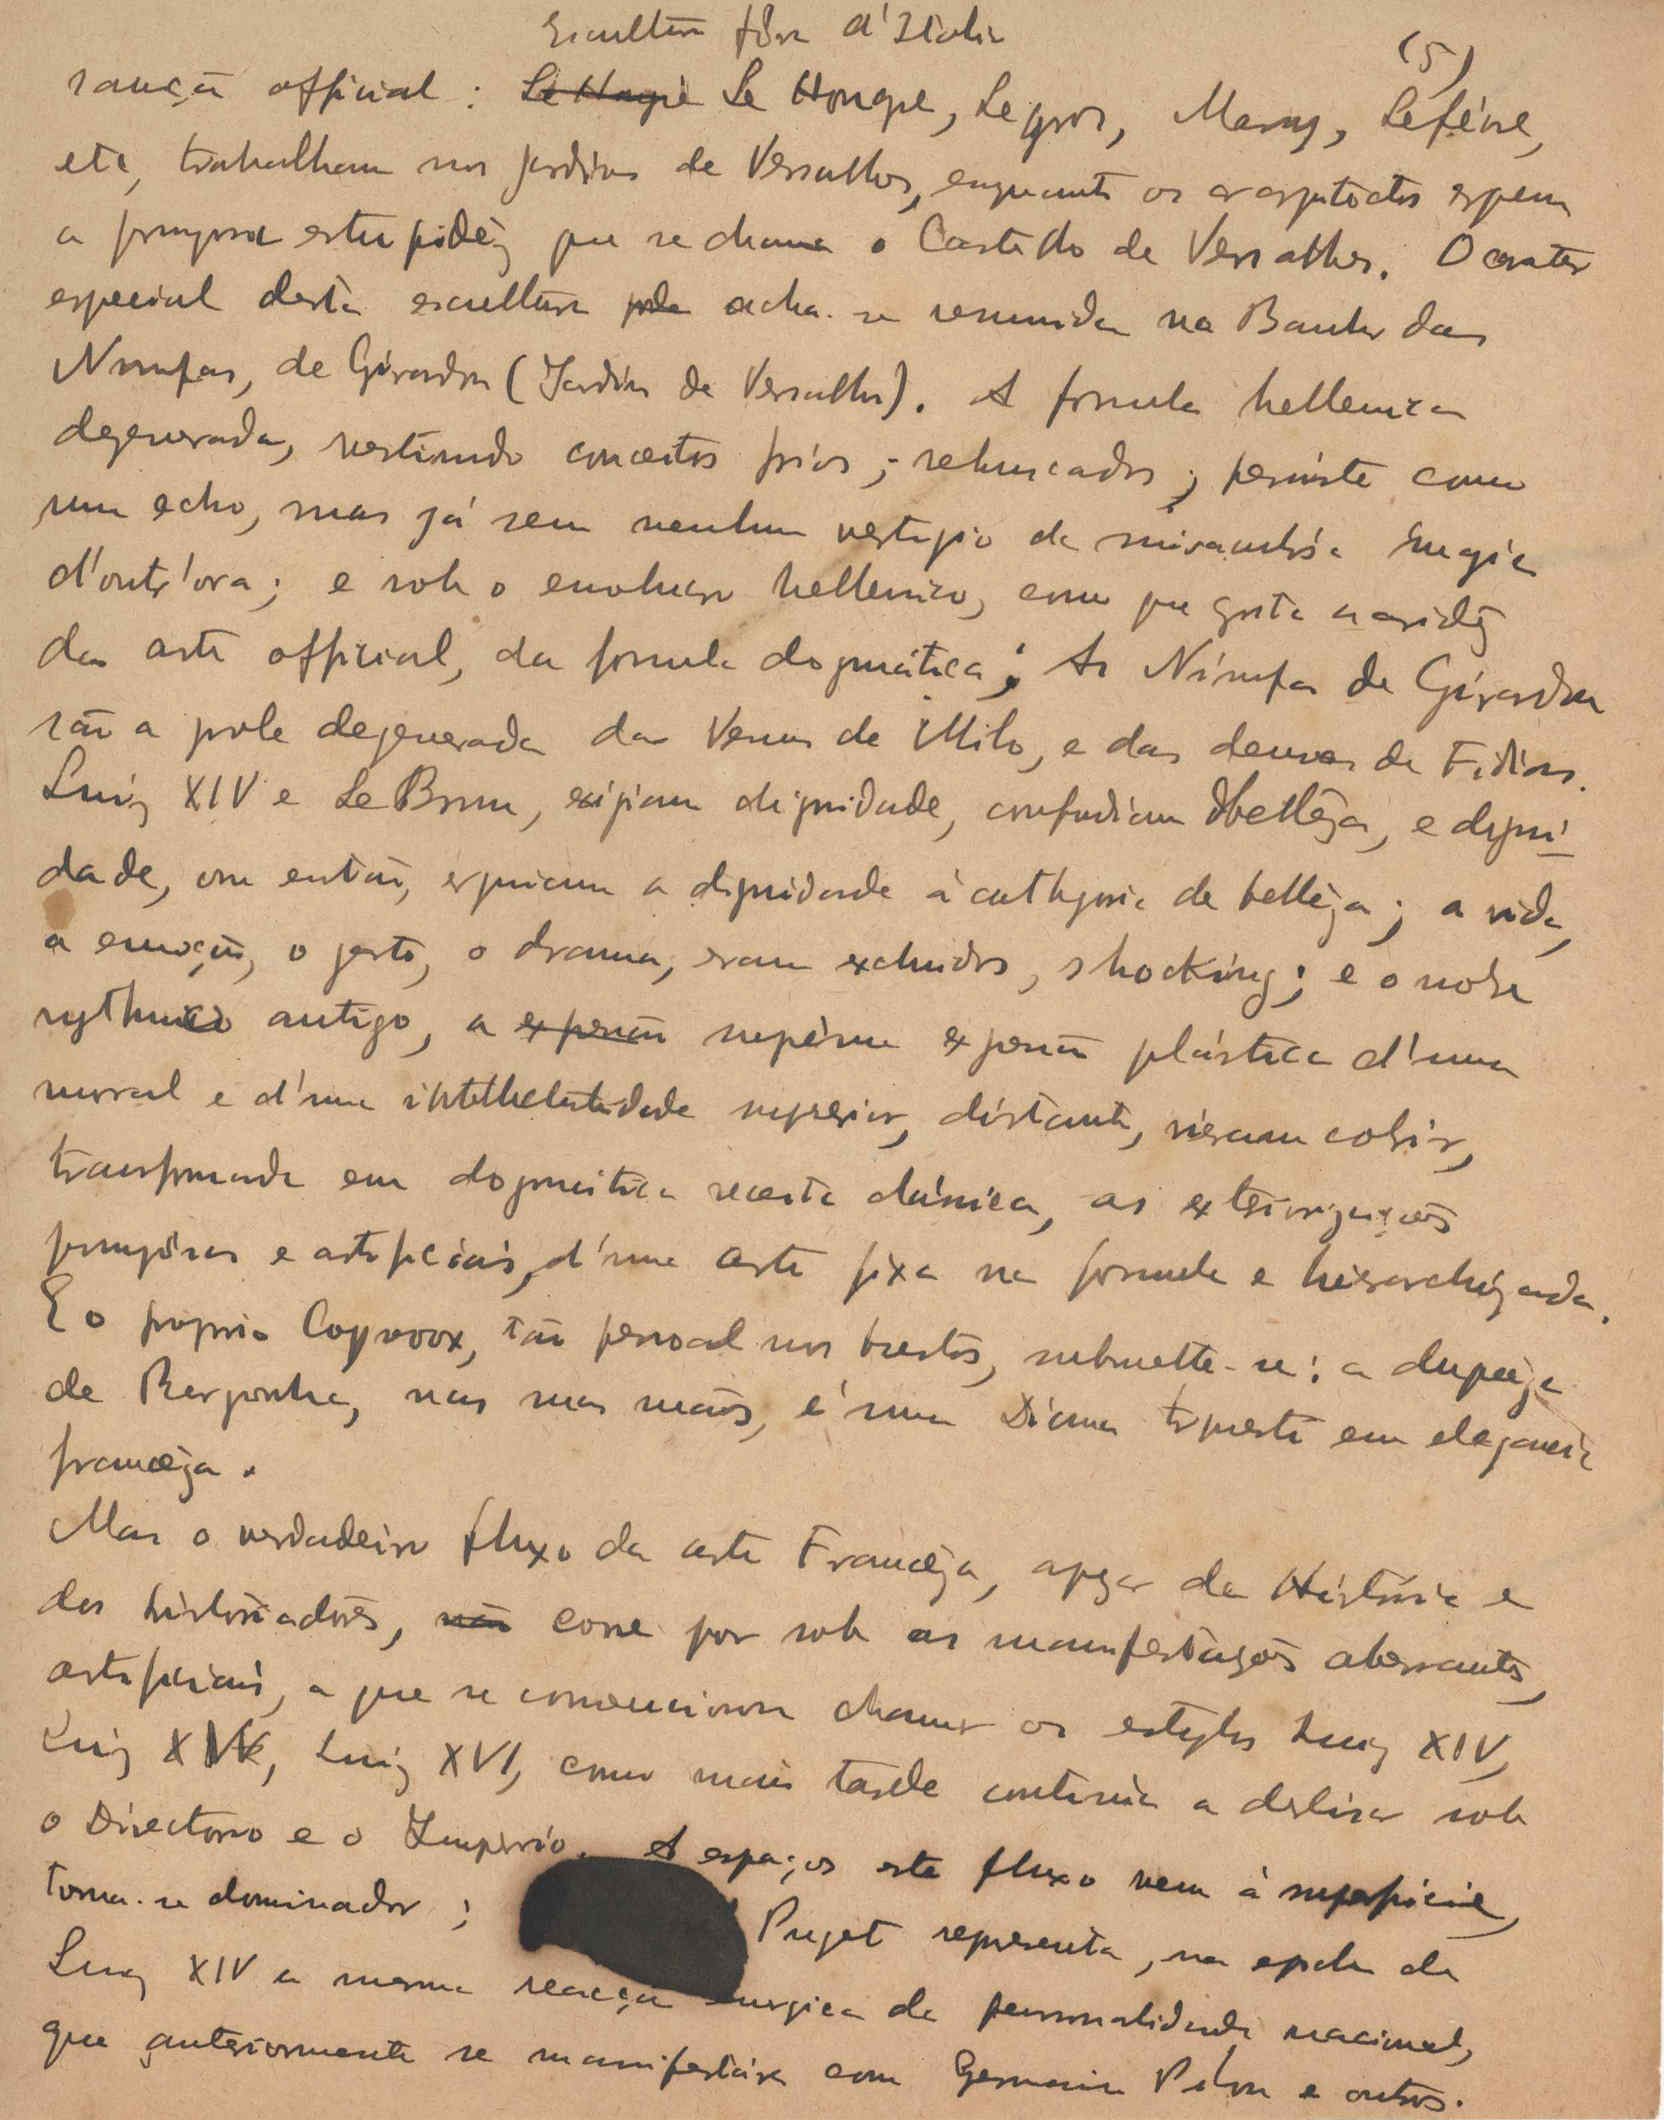 Escultura fóra d'Italia
(5)
sancçã official: Le Hongre, Legros, Marsy, Lefévre,
etc, trabalham nos jardins de Versalhes, enquanto os arqitectos erguem
a pomposa estupidêz que se chama o Castello de Versalhes. O carater
especial desta escultura acha-se resumida na Banho das
Nimfas, de Girardon (Jardins de Versalhes). A formula hellenica
degenerada, vestindo conceitos frios, rebuscados, persiste como
um echo, mas já sem nenhum vestigio da miraculósa magia
d'outr'ora; e sob o envolucro hellenico, como que grita a aridêz
da arte official, da formula dogmática; As Nimfas de Girardon
são a prole degenerada da Venus de Milo, e das deusas de Fidias.
Luiz XIV e Le Brun, exigiam dignidade, confudiam belleza, e digni-
dade, ou então, erguiam a dignidade á cathegoria de belleza; a vida,
a emoção, o gesto, o drama, eram excluidos, shocking; e o nobre
rythmo antigo, a suprema expressão plástica d'uma
moral e d'uma intellectualidade superior, distante, vieram cobrir,
transformada em dogmática receita clássica, as exteriorizações
pompósas e artificiais, d'uma arte fixa na formula e hierarchizada.
E o proprio Coysvox, tão pessoal nos bustos, submette-se: a duqueza
de Borgonha, nas suas mãos, é uma Diana trposta em elegancia
franceza.
Mas o verdadeiro fluxo da arte Franceza, apezar da História e
dos historiadores, corre por sob as manifestações aberrantes,
artificiais, a que se convencionou chamar os estylos Luiz XIV,
Luiz XV, Luiz XVI, como mais tarde continúa a deslisar sob
o Directorio e o Imperio. A espaços este fluxo vem á superficie,
torna-se dominador; Puget representa, na epoca de
Luiz XIV a mesma reacção energica da personalidade nacional,
que anteriormente se manifestára com Germain Pilon e outros.